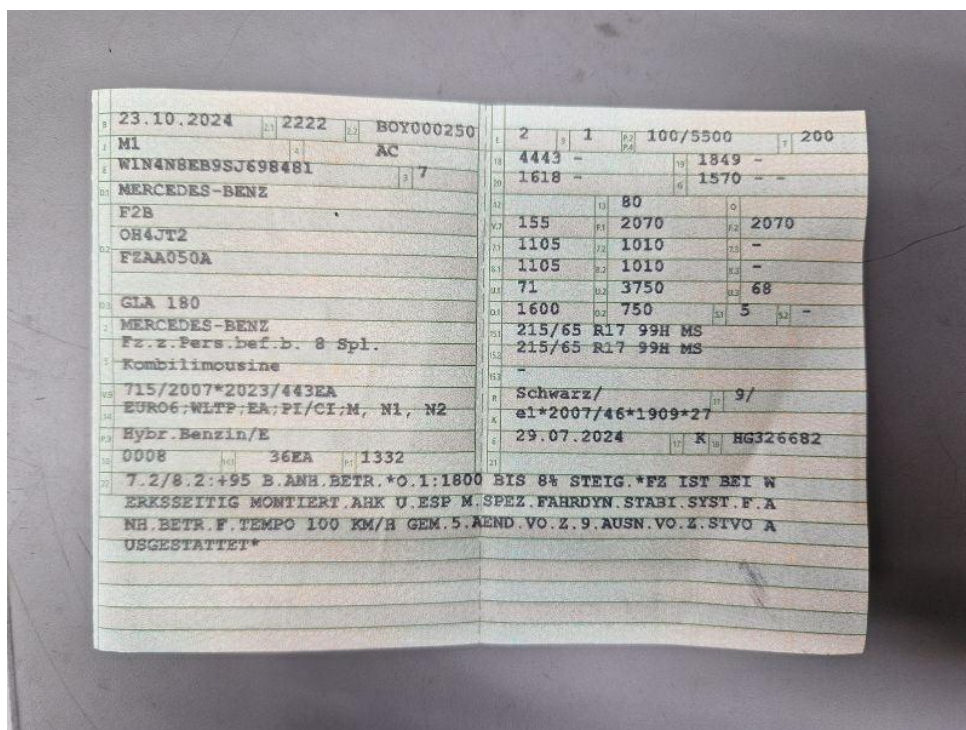 B 23.10.2024 2.1 2222 2.2 BOY000250
J M1 4 AC
E W1N4N8EB9SJ698481 3 7
D.1 MERCEDES-BENZ
F2B
D.2 OH4JT2
FZAA050A
D.3 GLA 180
2 MERCEDES-BENZ
5 Fz.z.Pers.bef.b. 8 Spl.
Kombilimousine
V.9 715/2007*2023/443EA
14 EURO6;WLTP;EA;PI/CI;M, N1, N2
P.3 Hybr.Benzin/E
10 0008 14.1 36EA P.1 1332
L 2 9 1 P.2 P.4 100/5500 T 200
18 4443 - 19 1849 -
20 1618 - G 1570 - -
12 13 80 Q
V.7 155 F.1 2070 F.2 2070
7.1 1105 7.2 1010 7.3 -
8.1 1105 8.2 1010 8.3 -
U.1 71 U.2 3750 U.3 68
O.1 1600 O.2 750 S.1 5 S.2 -
15.1 215/65 R17 99H MS
15.2 215/65 R17 99H MS
15.3 -
R Schwarz/ 11 9/
K e1*2007/46*1909*27
6 29.07.2024 17 K 16 HG326682
21
22 7.2/8.2:+95 B.ANH.BETR.*O.1:1800 BIS 8% STEIG.*FZ IST BEI W
ERKSSEITIG MONTIERT.AHK U.ESP M.SPEZ.FAHRDYN.STABI.SYST.F.A
NH.BETR.F.TEMPO 100 KM/H GEM.5.AEND.VO.Z.9.AUSN.VO.Z.STVO A
USGESTATTET*